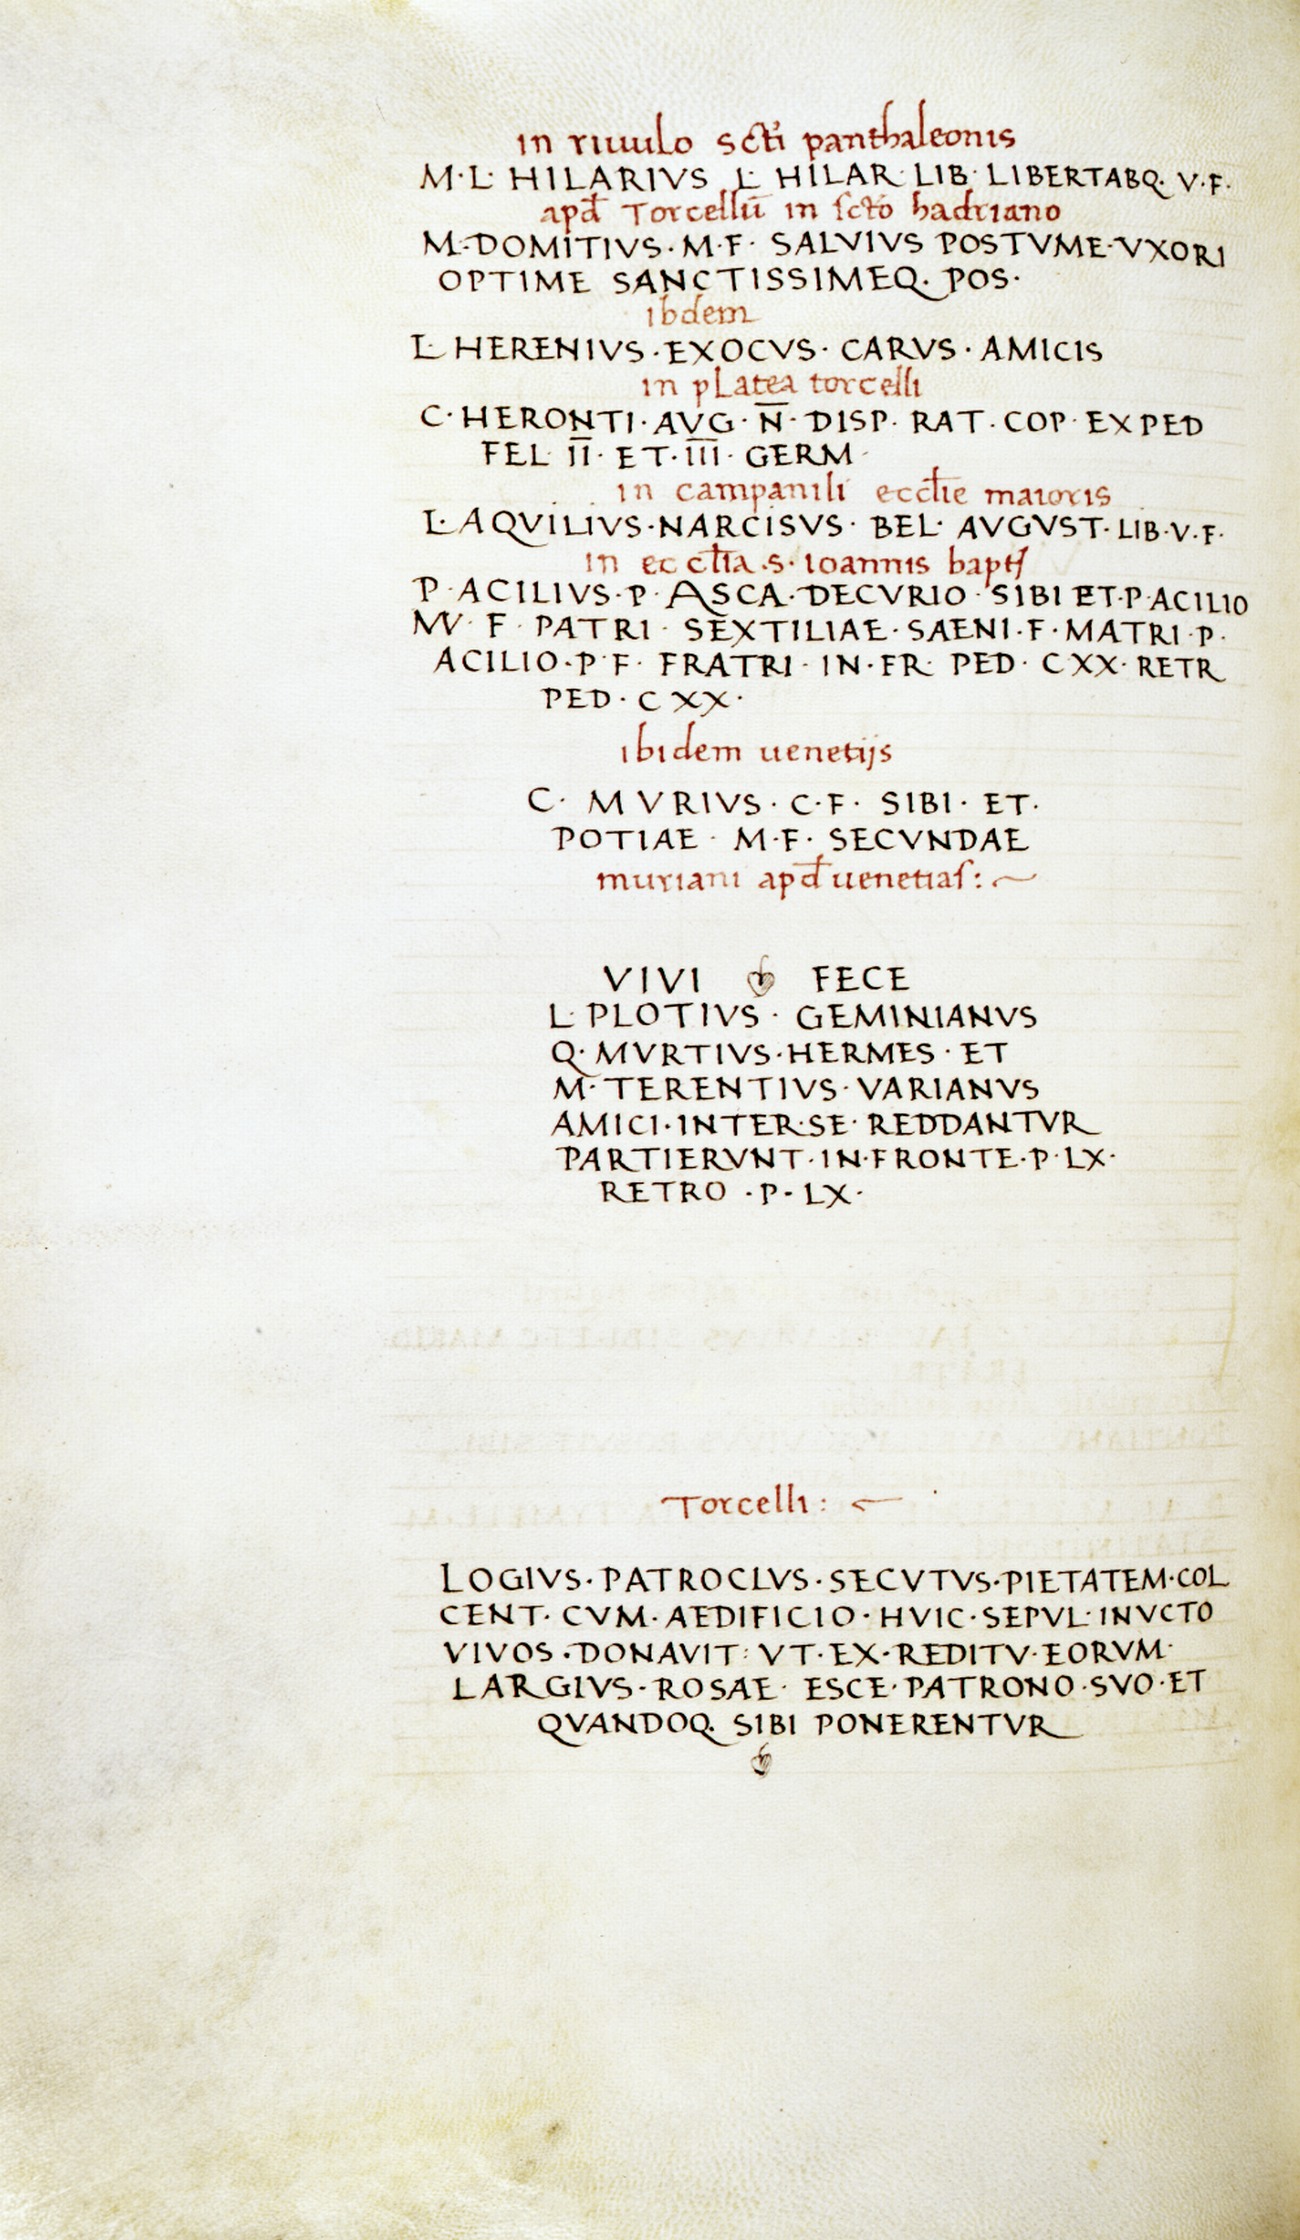 in riuulo sc̄ti panthaleonis
M·L· HILARIVS L· HILAR· LIB· LIBERTABQ. V·F·
apd̄ Torcellū in scto hadriano
M·DOMITIVS·M·F· SALVIVS POSTVME·VXORI
OPTIME SANCTISSIMEQ. POS·
ibdem
L· HERENIVS·EXOCVS· CARVS·AMICIS
in platea torcelli
C·HERONTI·AVG·N̄·DISP· RAT·COP·EXPED
FEL· I̅I̅· ET·I̅I̅I̅· GERM·
in campanili eccl̄ie maioris
L·AQVILIVS·NARCISVS· BEL· AVGVST·LIB·V·F·
in eccl̄ia·s·ioannis bapt
P·ACILIVS·P·ASCA·DECVRIO·SIBI ET·P·ACILIO
F· PATRI· SEXTILIAE·SAENI·F·MATRI·P·
ACILIO·P·F· FRATRI·IN·FR· PED· CXX·RETR
PED·CXX·
ibidem uenetijs
C· MVRIVS·C·F· SIBI· ET·
POTIAE· M·F· SECVNDAE
muriani apd̄ uenetias:
VIVI FECE
L·PLOTIVS· GEMINIANVS
Q·MVRTIVS·HERMES·ET
M·TERENTIVS·VARIANVS
AMICI·INTER·SE·REDDANTVR
PARTIERVNT·IN·FRONTE·P·LX·
RETRO·P·LX·
Torcelli:
LOGIVS·PATROCLVS·SECVTVS·PIETATEM·COL
CENT·CVM·AEDIFICIO·HVIC·SEPVL·INVCTO
VIVOS·DONAVIT:VT·EX·REDITV·EORVM·
LARGIVS·ROSAE· ESCE·PATRONO·SVO·ET
QVANDOQ. SIBI PONERENTVR